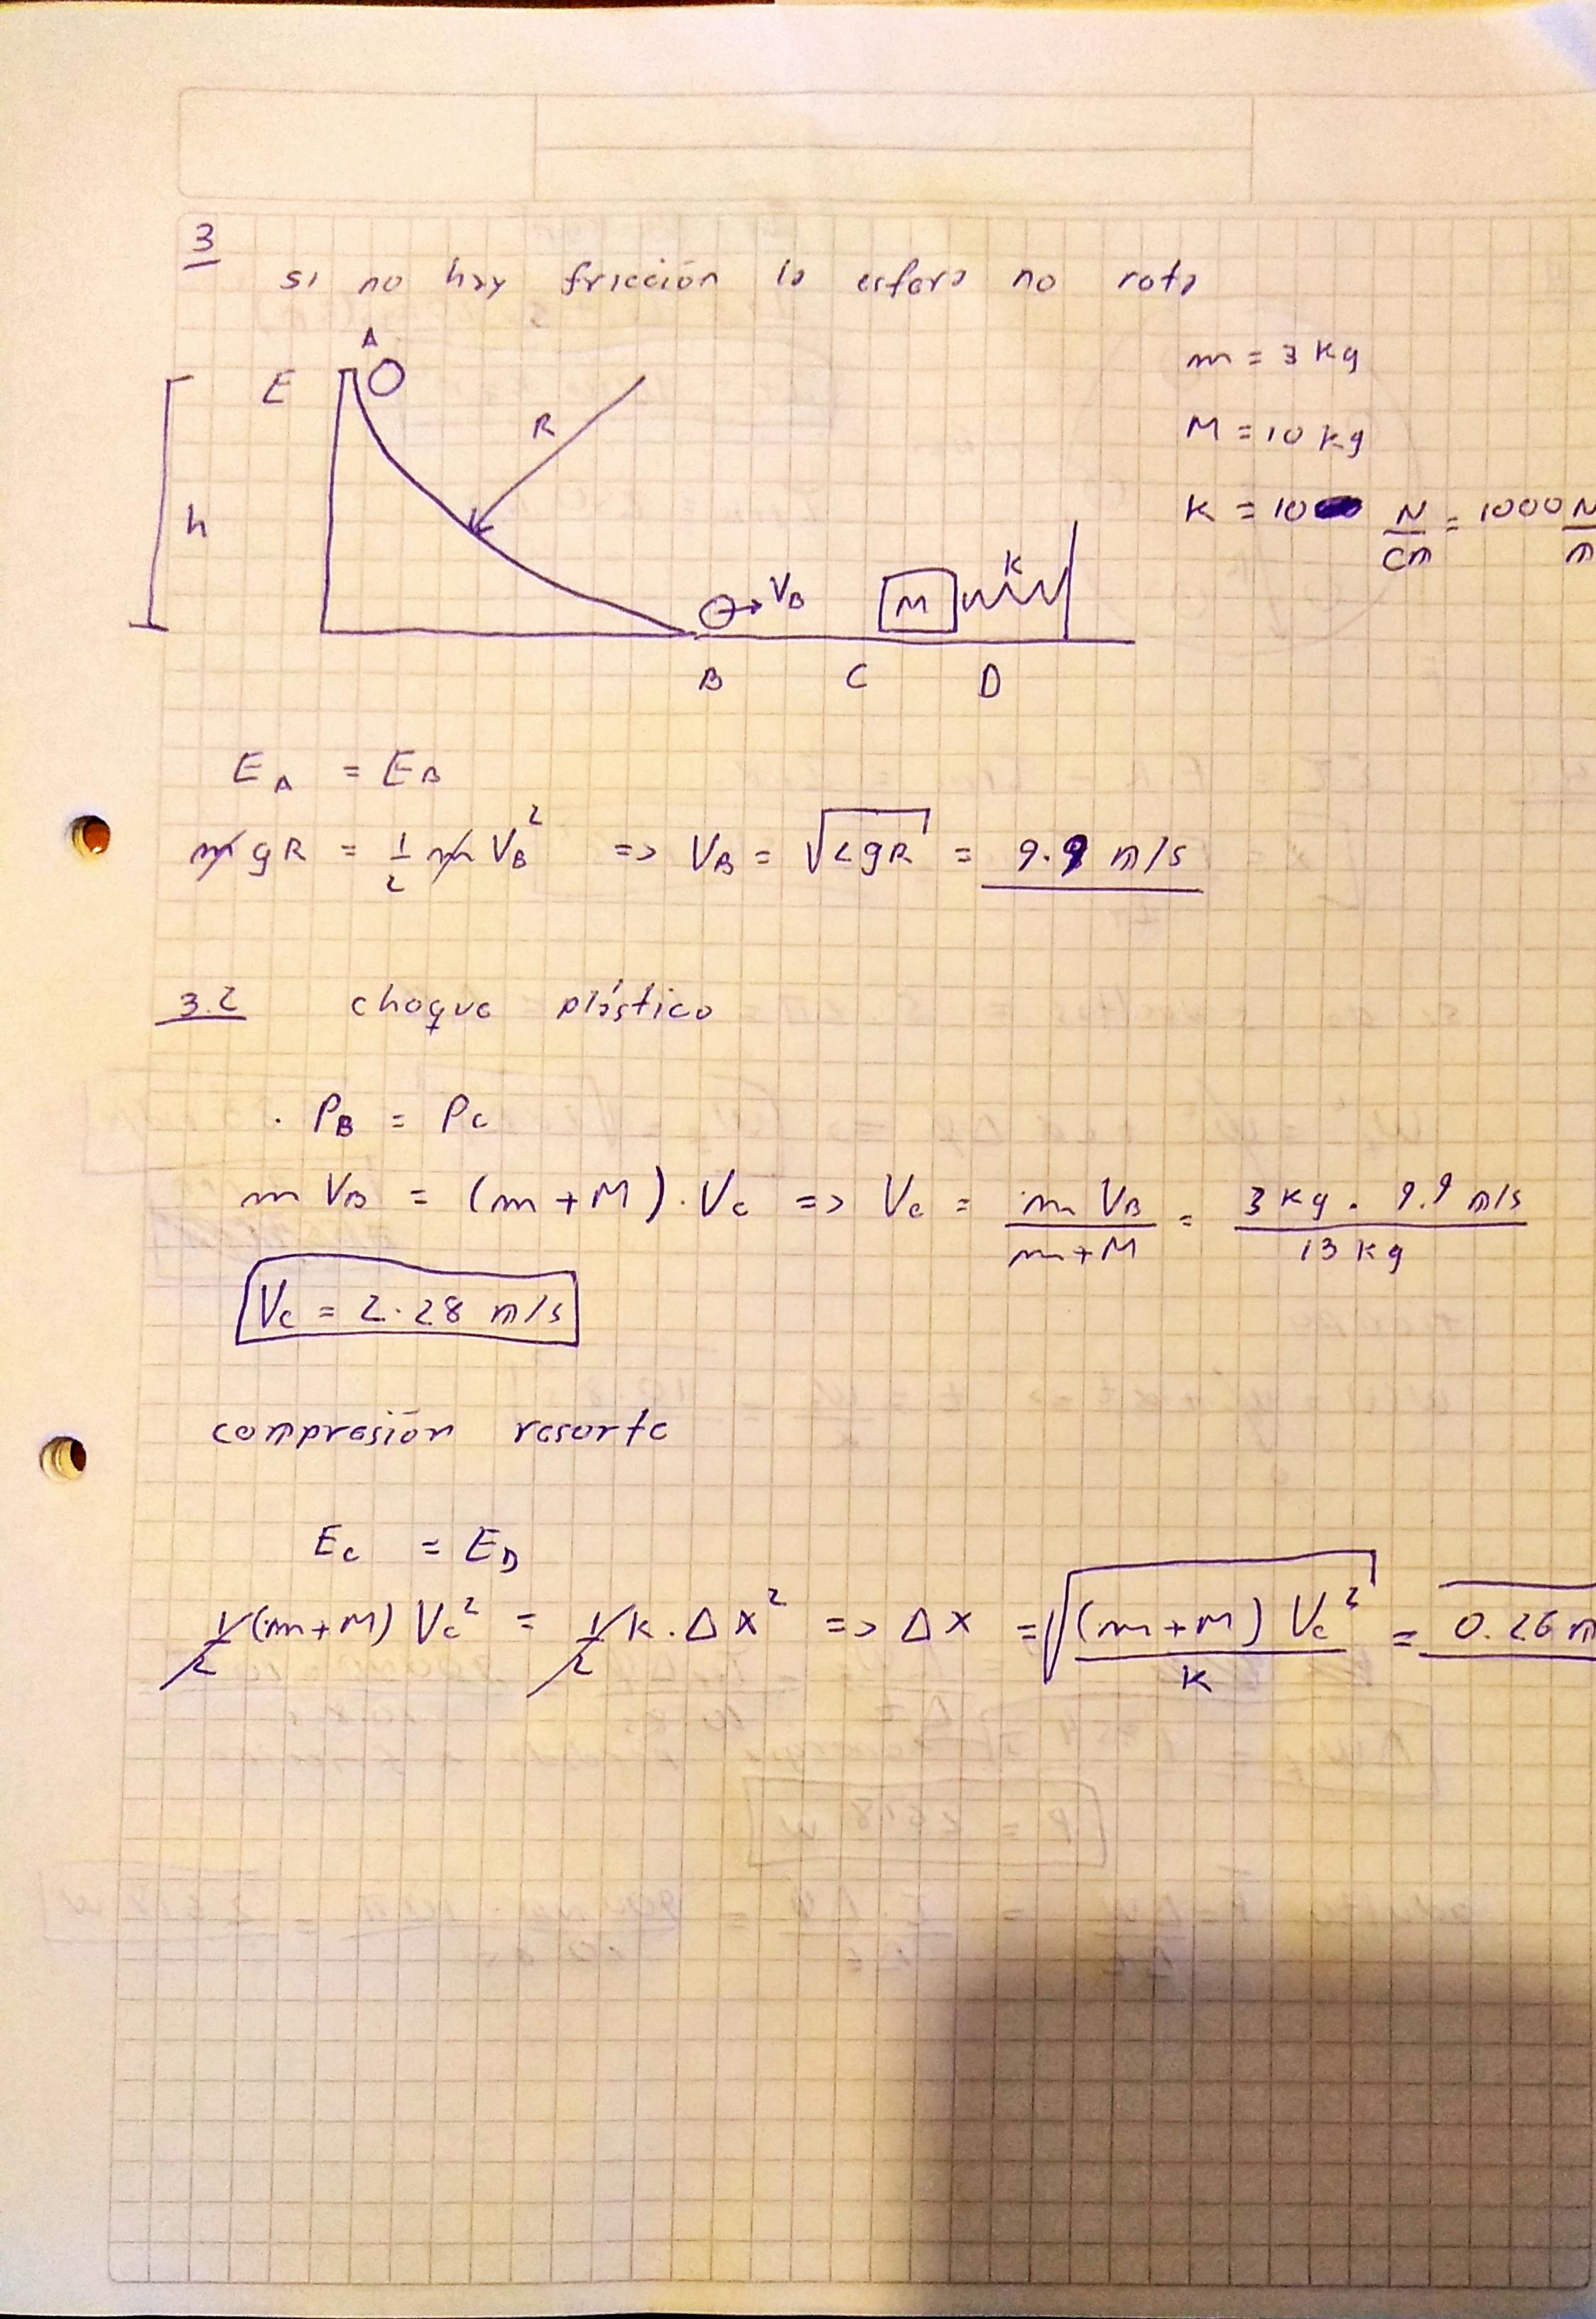 3
si no hay fricción la esfera no rota
A
E
R
h
VB
M
K
B C D
m = 3 kg
M = 10 kg
K = 10 N/cm = 1000 N/m
EA = EB
m g R = 1/2 m VB² => VB = √2gR = 9.9 m/s
3.2 choque plástico
· PB = Pc
m VB = (m+M) · Vc => Vc = m VB / m+M = 3 kg . 9.9 m/s / 13 kg
Vc = 2.28 m/s
compresión resorte
Ec = ED
1/2 (m+M) Vc² = 1/2 K . Δx² => Δx = √(m+M) Vc² / K = 0.26 m